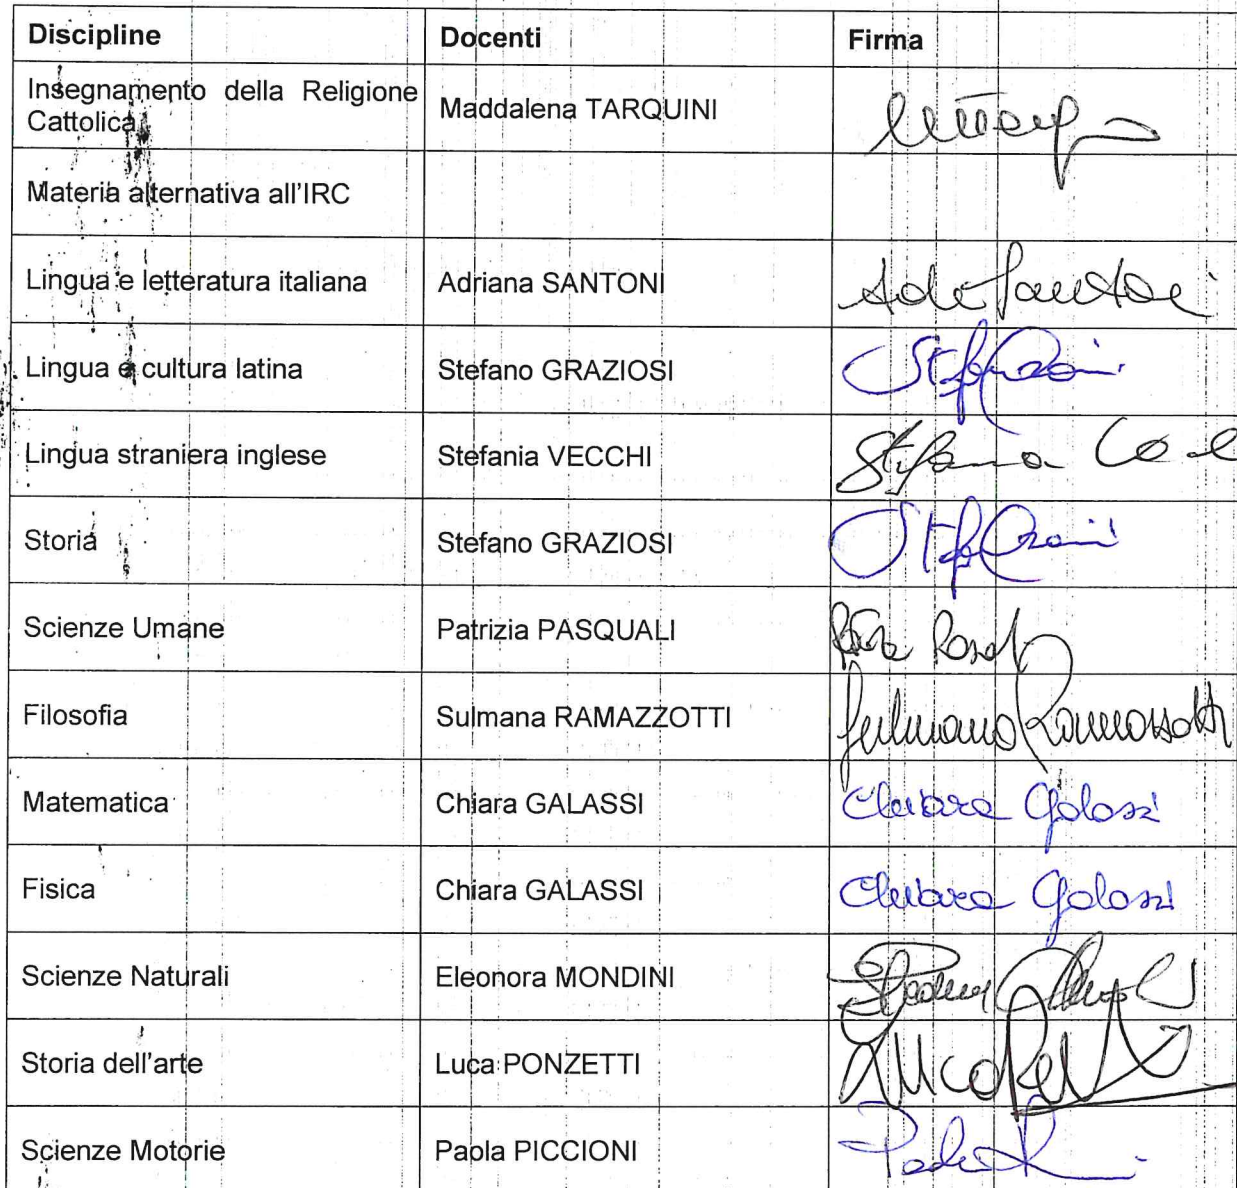 Discipline Docenti Firma
Insegnamento della Religione
Cattolica Maddalena TARQUINI
Materia alternativa all'IRC
Lingua e letteratura italiana Adriana SANTONI
Lingua e cultura latina Stefano GRAZIOSI
Lingua straniera inglese Stefania VECCHI Stefania
Storia Stefano GRAZIOSI
Scienze Umane Patrizia PASQUALI
Filosofia Sulmana RAMAZZOTTI Sulmana Ramazzotti
Matematica Chiara GALASSI Chiara Galassi
Fisica Chiara GALASSI Chiara Galassi
Scienze Naturali Eleonora MONDINI
Storia dell'arte Luca PONZETTI
Scienze Motorie Paola PICCIONI